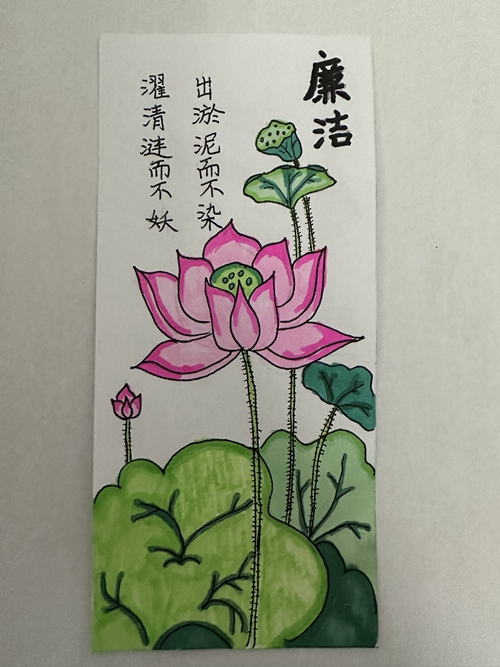 廉洁
出淤泥而不染
濯清涟而不妖